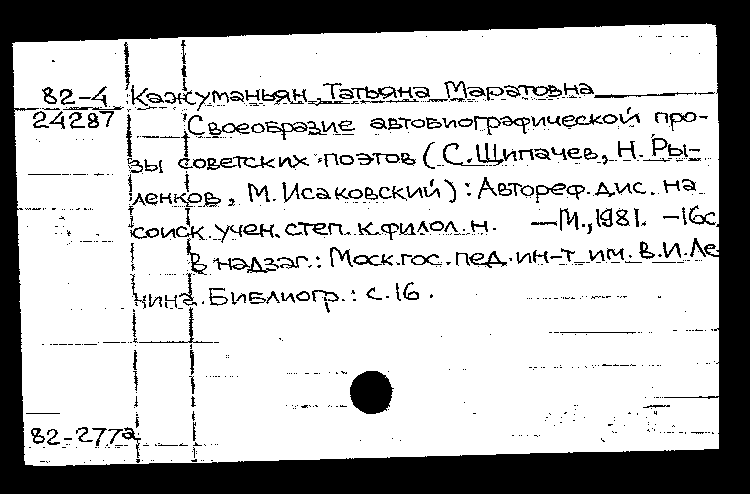 82-4 Кажуманьян, Татьяна Маратовна
24287 Своеобразие автобиографической про-
зы советских поэтов (С. Щипачев, Н. Ры-
ленков, М. Исаковский): Автореф. дис. на
соиск. учен. степ. к. филол. н. — М., 1981. — 16с.
В надзаг.: Моск. гос. пед. ин-т им. В.И. Ле
нина. Библиогр.: с. 16.
82-277а